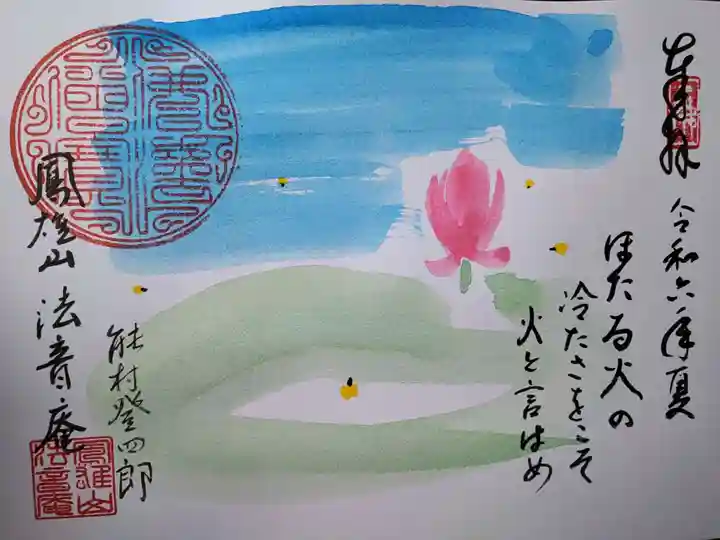 奉拝 令和六年夏
ほたる火の
冷たさをこそ
火と言はめ
能村登四郎
鳳雄山 法音庵
鳳雄山
法音庵